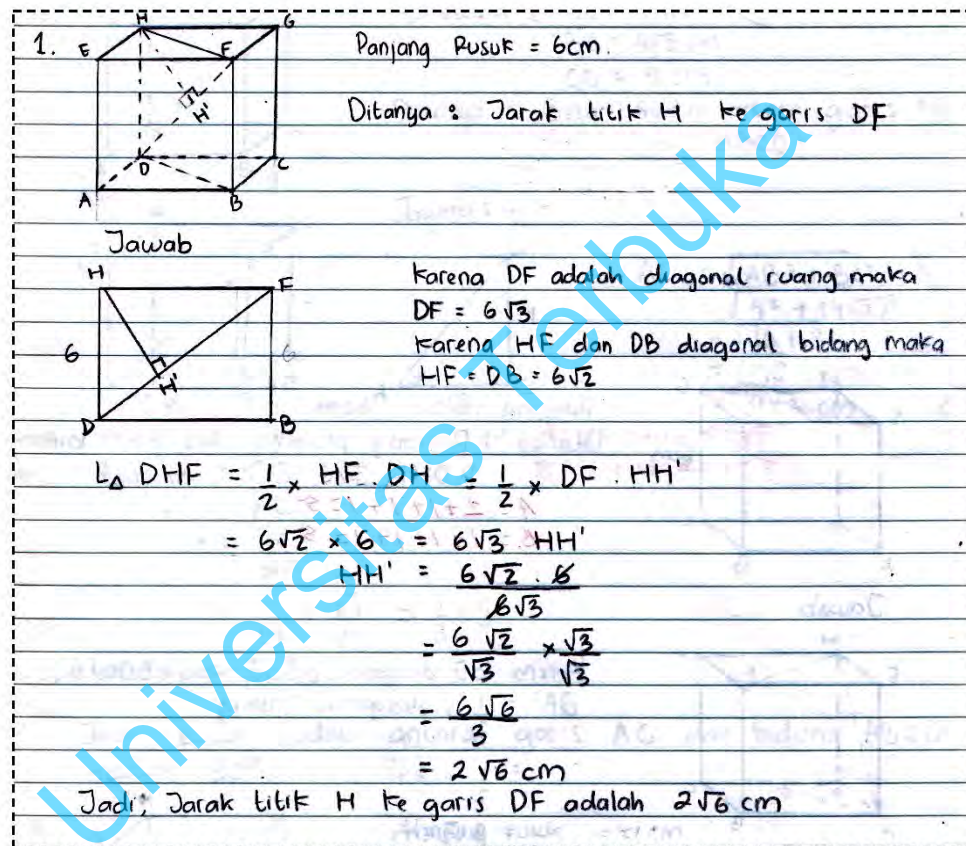 1.
H G
E F
H'
D C
A B
Panjang Rusuk = 6cm.
Ditanya : Jarak titik H ke garis DF
Jawab
H F
6 6
H'
D B
Karena DF adalah diagonal ruang maka
DF = 6√3
Karena HF dan DB diagonal bidang maka
HF = DB = 6√2
L△ DHF = 1/2 × HF . DH = 1/2 × DF . HH'
= 6√2 × 6 = 6√3 . HH'
HH' = 6√2 . 6 / 6√3
= 6√2/√3 × √3/√3
= 6√6/3
= 2√6 cm
Jadi, Jarak titik H ke garis DF adalah 2√6 cm
Universitas Terbuka